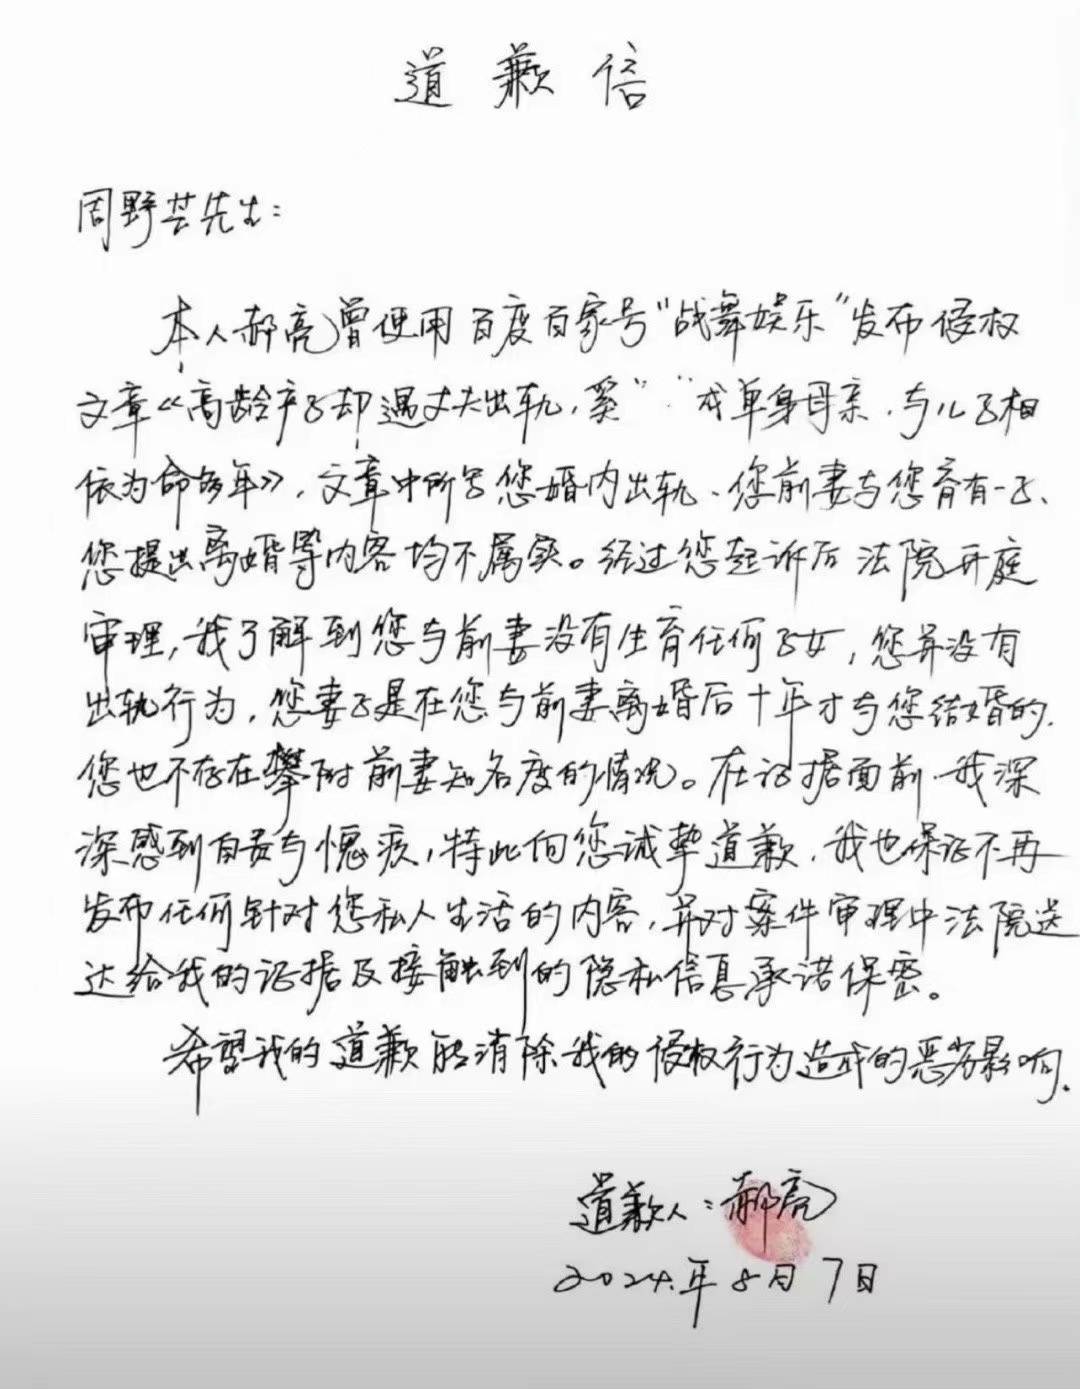 道歉信
周野芒先生：
本人郝亮曾使用百度百家号“战舞娱乐”发布侵权
文章《高龄产子却遇丈夫出轨，奚" "成单身母亲，与儿子相
依为命多年》，文章中所写您婚内出轨、您前妻与您育有一子、
您提出离婚等内容均不属实。经过您起诉后法院开庭
审理，我了解到您与前妻没有生育任何子女，您并没有
出轨行为，您妻子是在您与前妻离婚后十年才与您结婚的，
您也不存在攀附前妻知名度的情况。在证据面前，我深
深感到自责与愧疚，特此向您诚挚道歉，我也保证不再
发布任何针对您私人生活的内容，并对案件审理中法院送
达给我的证据及接触到的隐私信息承诺保密。
希望我的道歉能消除我的侵权行为造成的恶劣影响。
道歉人：郝亮
2024年8月7日